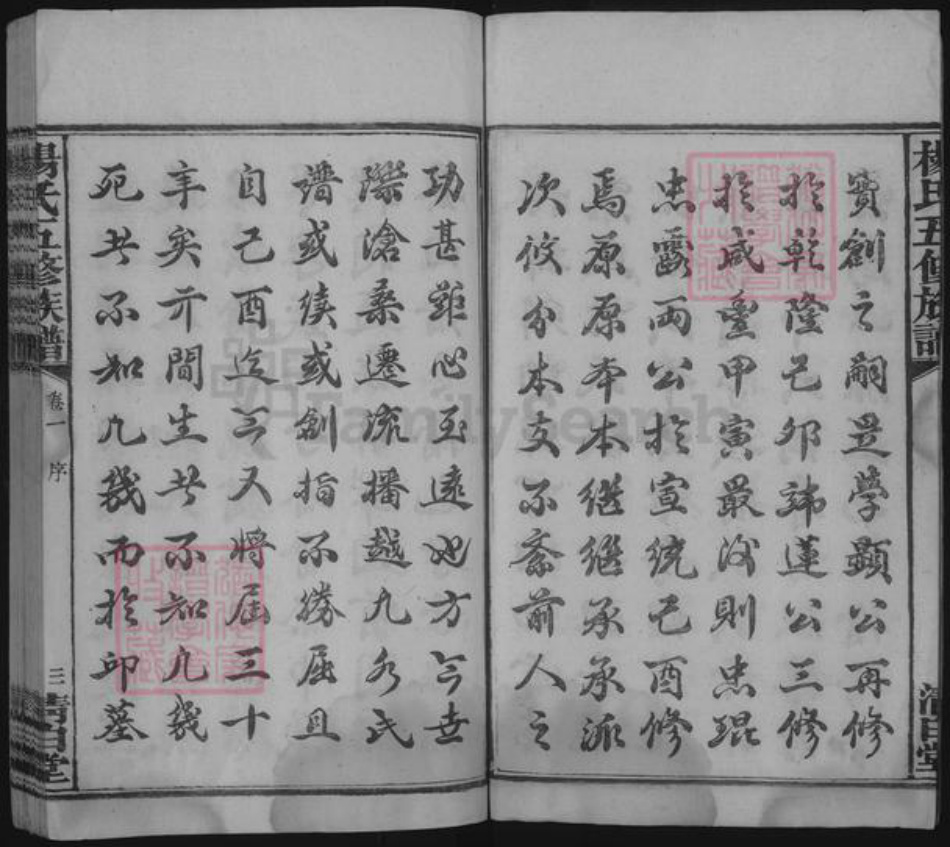 楊氏五修族譜
清白堂
實創之嗣是學顯公再修
於乾隆己卯諱蓮公三修
於咸豐甲寅最後則忠琨
忠露兩公於宣統己酉修
焉原原本本繼繼承承派
次攸分本支不紊前人之
功甚鉅心至遠也方今世
際滄桑遷流播越九水氏
譜或續或創指不勝屈且
自己酉迄今又將屆三十
年矣亓間生者不知凡幾
死者不知凡幾而於邱墓
楊氏五修族譜
卷一
序
三
清白堂
FamilySearch